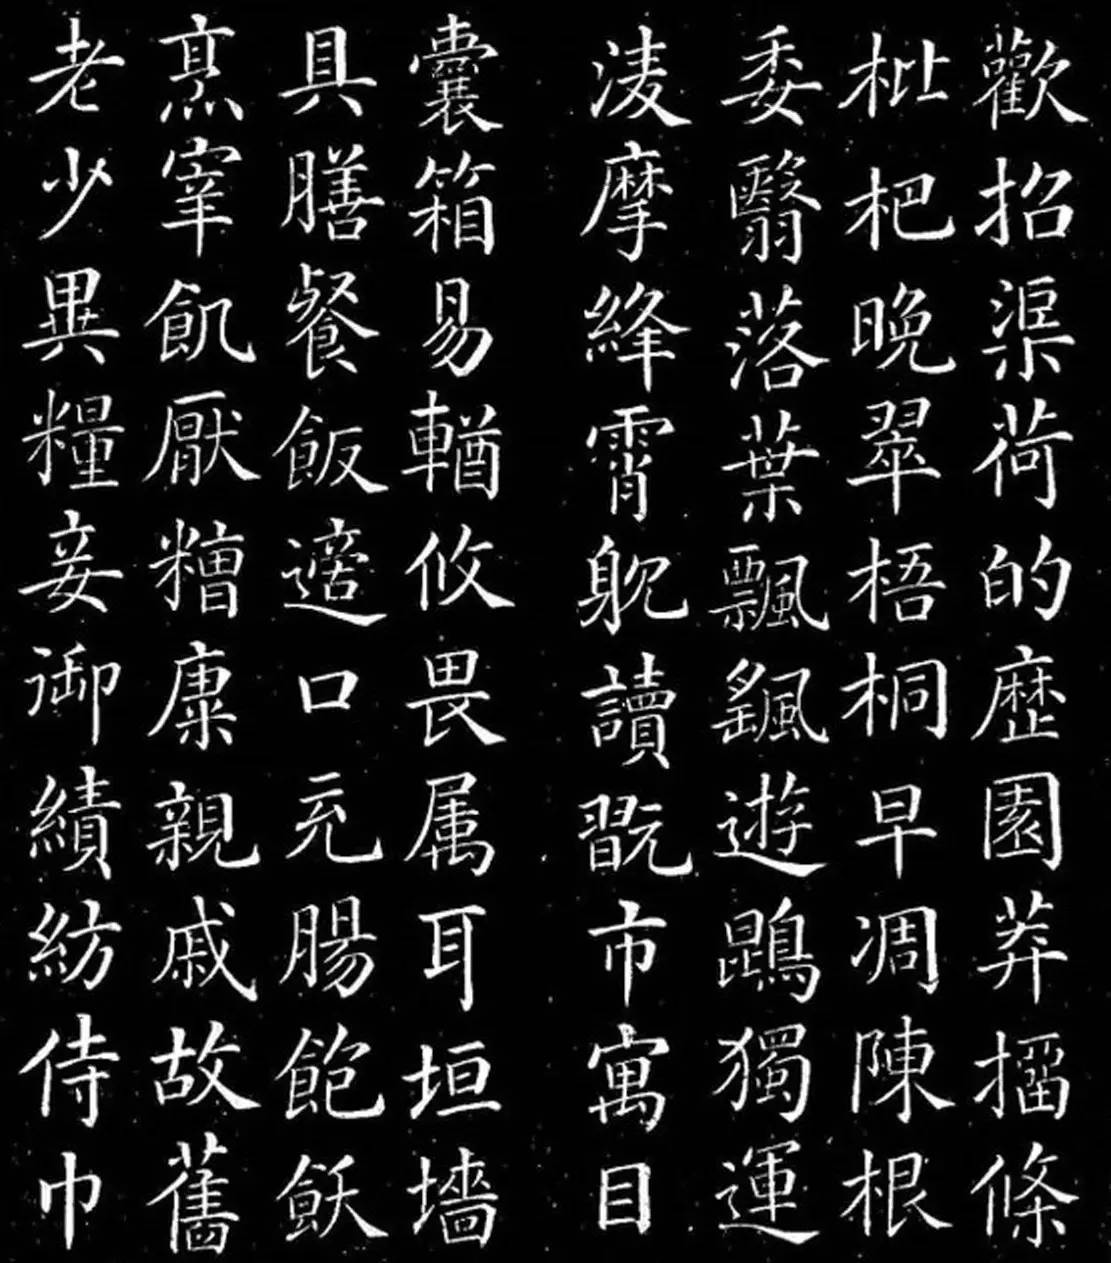 歡招渠荷的歷園莽㨨條
枇杷晚翠梧桐早凋陳根
委翳落葉飄颻遊鵾獨運
淩摩絳霄躭讀翫市寓目
囊箱易輶攸畏属耳垣墻
具膳餐飯適口充腸飽飫
烹宰飢厭糟糠親戚故舊
老少異糧妾御績紡侍巾